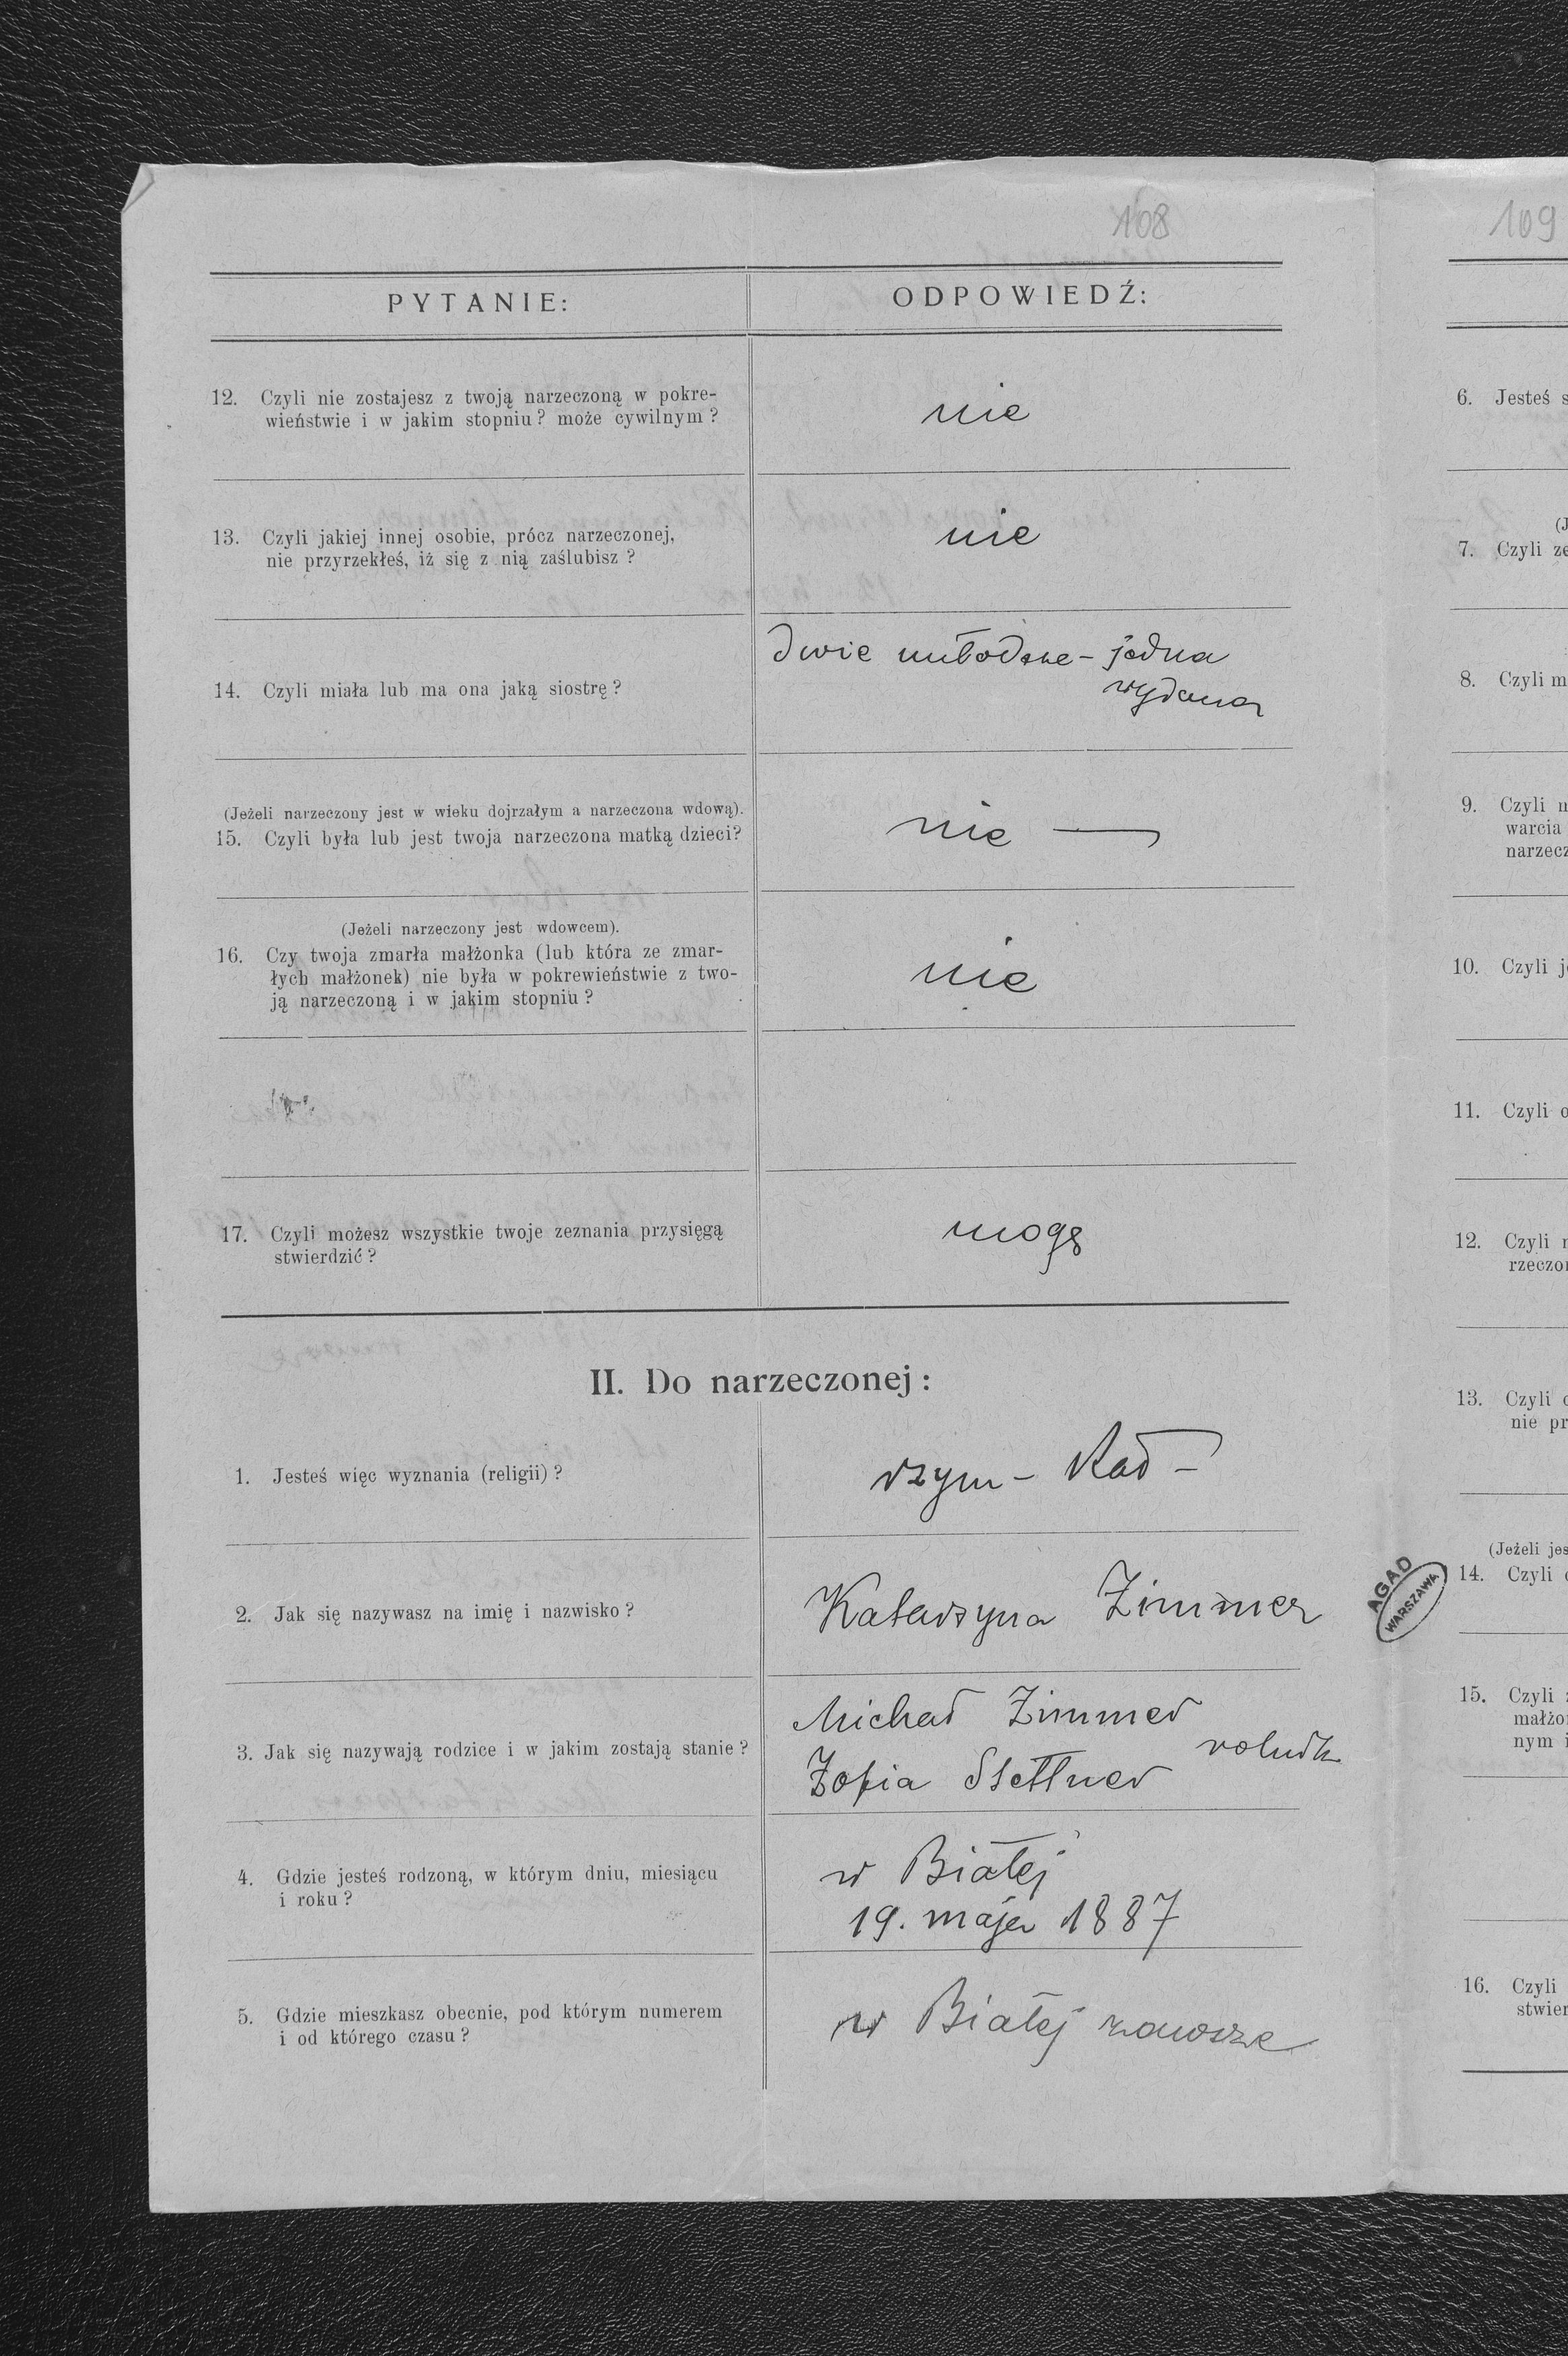 108
PYTANIE:
ODPOWIEDŹ:
12. Czyli nie zostajesz z twoją narzeczoną w pokre-
wieństwie i w jakim stopniu? może cywilnym?
nie
13. Czyli jakiej innej osobie, prócz narzeczonej,
nie przyrzekłeś, iż się z nią zaślubisz?
nie
14. Czyli miała lub ma ona jaką siostrę?
dwie młodsze - jedna
wydana
(Jeżeli narzeczony jest w wieku dojrzałym a narzeczona wdową).
15. Czyli była lub jest twoja narzeczona matką dzieci?
nie —
(Jeżeli narzeczony jest wdowcem).
16. Czy twoja zmarła małżonka (lub która ze zmar-
łych małżonek) nie była w pokrewieństwie z two-
ją narzeczoną i w jakim stopniu?
nie
17. Czyli możesz wszystkie twoje zeznania przysięgą
stwierdzić?
mogę
II. Do narzeczonej:
1. Jesteś więc wyznania (religii)?
rzym - kat -
2. Jak się nazywasz na imię i nazwisko?
Katarzyna Zimmer
3. Jak się nazywają rodzice i w jakim zostają stanie?
Michał Zimmer
Zofia Stettner
4. Gdzie jesteś rodzoną, w którym dniu, miesiącu
i roku?
w Białej
19. maja 1887
5. Gdzie mieszkasz obecnie, pod którym numerem
i od którego czasu?
w Białej zawsze
AGAD
WARSZAWA
109
6. Jesteś s
(J
7. Czyli ze
8. Czyli m
9. Czyli n
warcia
narzecz
10. Czyli j
11. Czyli o
12. Czyli n
rzeczo
13. Czyli c
nie pr
(Jeżeli jes
14. Czyli c
15. Czyli z
małżo
nym i
16. Czyli
stwier